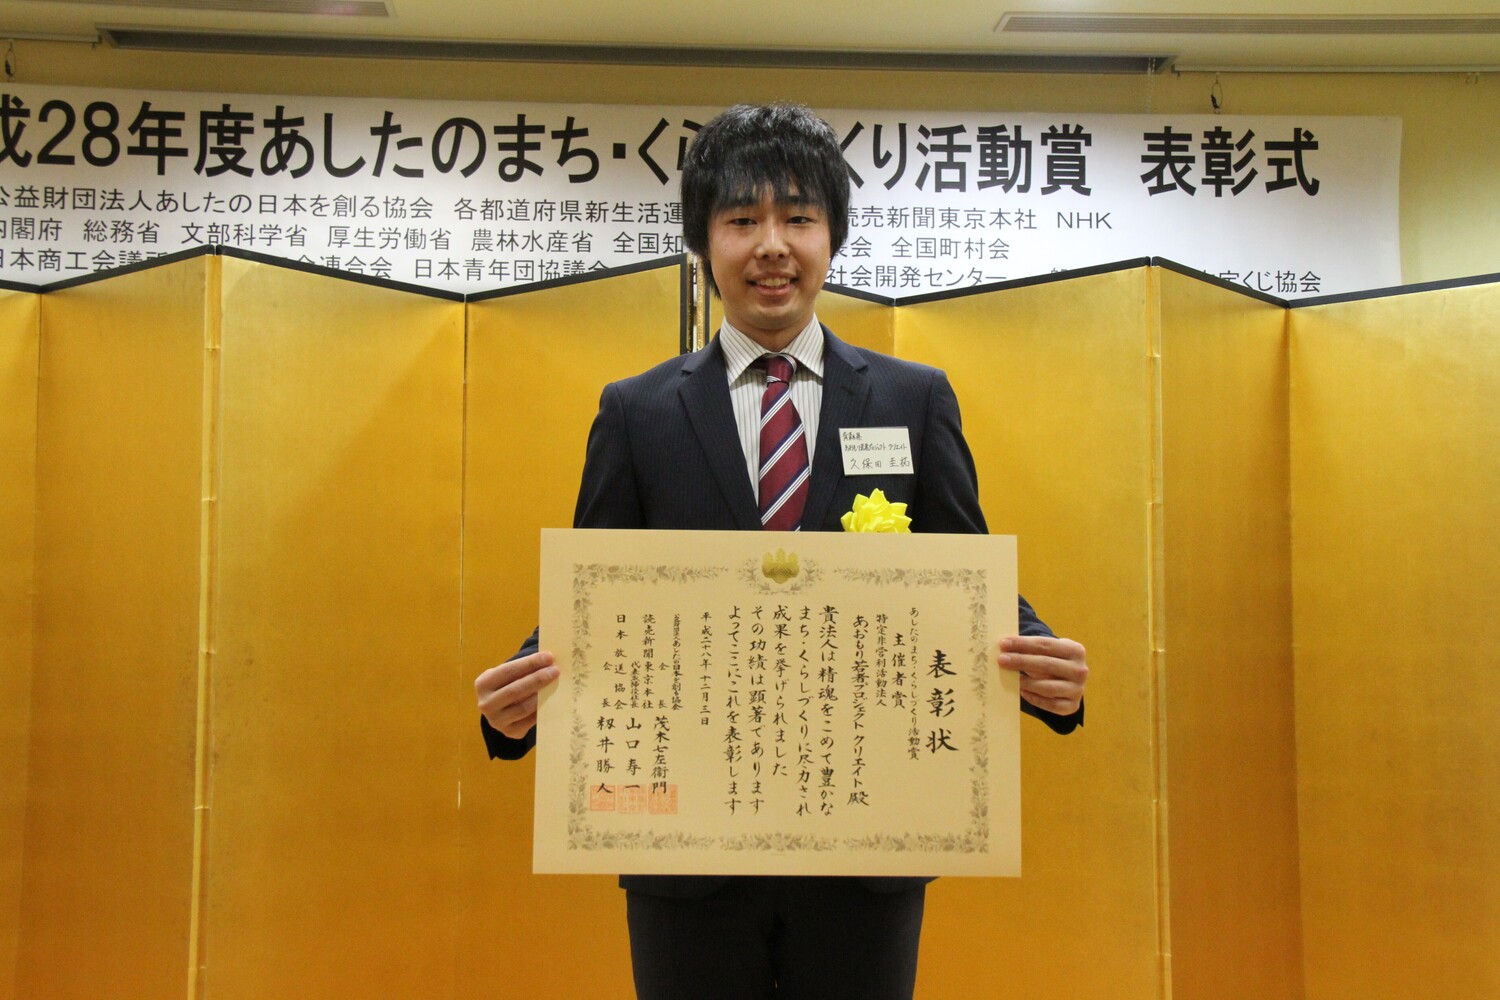 成28年度あしたのまち・くら くり活動賞 表彰式
公益財団法人あしたの日本を創る協会 各都道府県新生活運 読売新聞東京本社 NHK
内閣府 総務省 文部科学省 厚生労働省 農林水産省 全国知 会 全国町村会
日本商工会議所 連合会 日本青年団協議会 社会開発センター くじ協会
青森県
あおもり若者プロジェクト クリエイト
久保田 圭祐
表彰状
あしたのまち・くらしづくり活動賞
主催者賞
特定非営利活動法人
あおもり若者プロジェクト クリエイト 殿
貴法人は精魂をこめて豊かな
まち・くらしづくりに尽力され
成果を挙げられました
その功績は顕著であります
よってここにこれを表彰します
平成二十八年十二月三日
公益財団法人あしたの日本を創る協会
会長 茂木七左衞門
読売新聞東京本社
代表取締役社長 山口寿一
日本放送協会
会長 籾井勝人